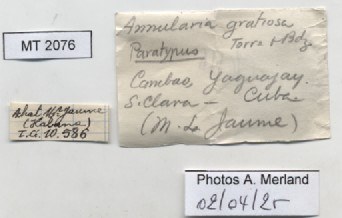 MT 2076
Annularia gratiosa
Paratypus Torre & Bdg
Cambao, Yaguajay.
S. Clara — Cuba
(M. L. Jaume)
Achat M. Jaume
(Habana)
I.G. 10.586
Photos A. Merland
02/04/25